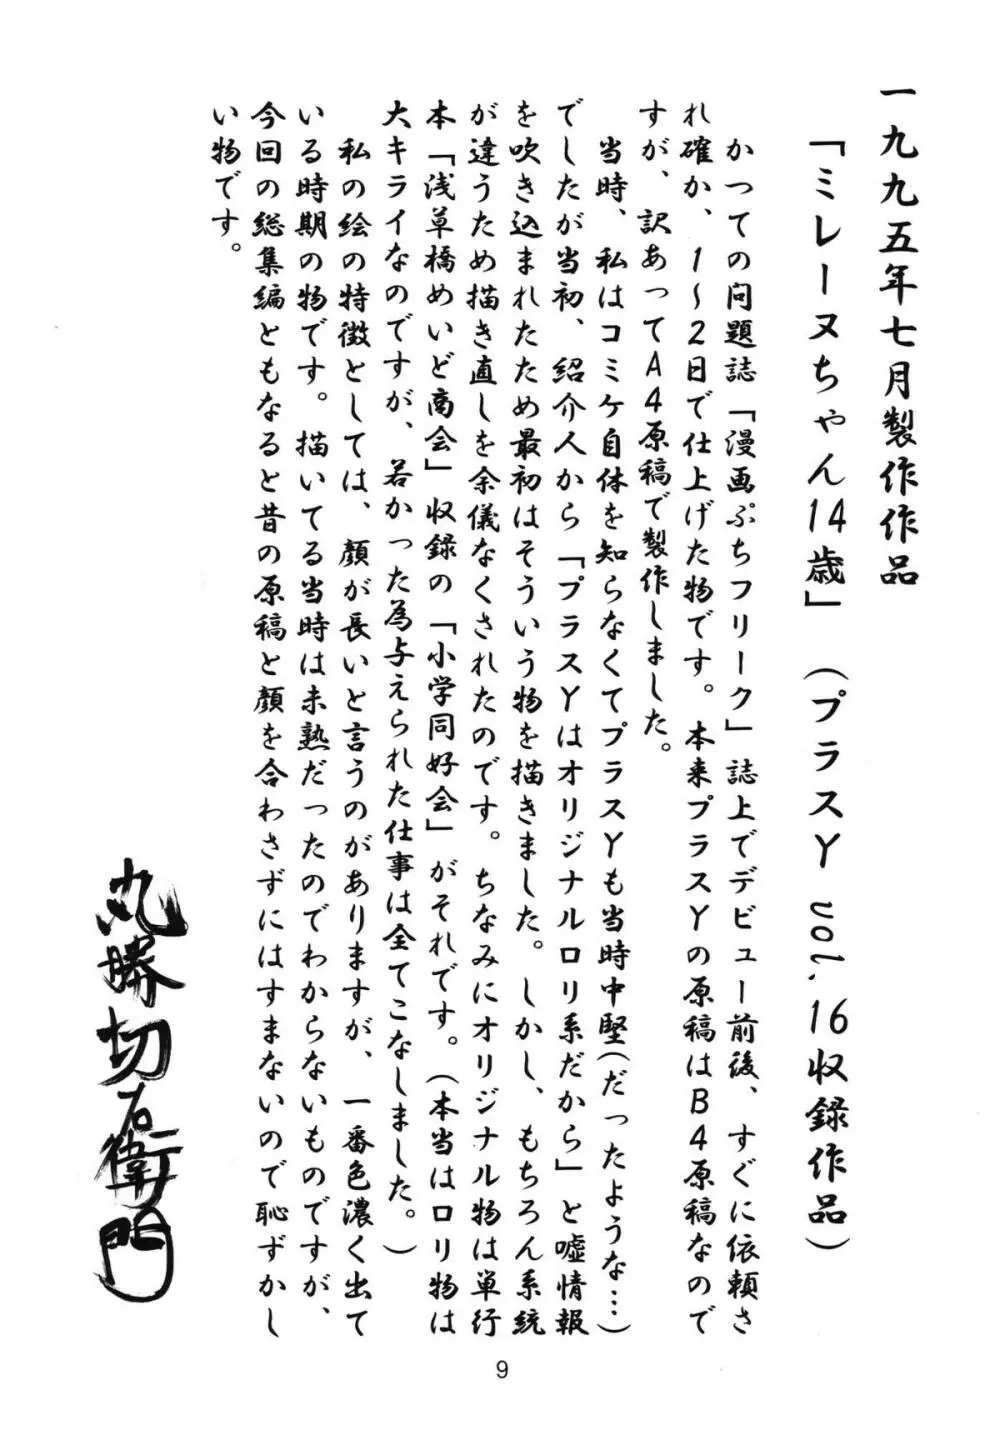 一九九五年七月製作作品
「ミレーヌちゃん14歳」(プラスY vol.16収録作品)
かつての問題誌「漫画ぷちフリーク」誌上でデビュー前後、すぐに依頼さ
れ確か、1〜2日で仕上げた物です。本来プラスYの原稿はB4原稿なので
すが、訳あってA4原稿で製作しました。
当時、私はコミケ自体を知らなくてプラスYも当時中堅(だったような…)
でしたが当初、紹介人から「プラスYはオリジナルロリ系だから」と嘘情報
を吹き込まれたため最初はそういう物を描きました。しかし、もちろん系統
が違うため描き直しを余儀なくされたのです。ちなみにオリジナル物は単行
本「浅草橋めいど商会」収録の「小学同好会」がそれです。(本当はロリ物は
大キライなのですが、若かった為与えられた仕事は全てこなしました。)
私の絵の特徴としては、顔が長いと言うのがありますが、一番色濃く出て
いる時期の物です。描いてる当時は未熟だったのでわからないものですが、
今回の総集編ともなると昔の原稿と顔を合わさずにはすまないので恥ずかし
い物です。
丸勝切右衛門
9